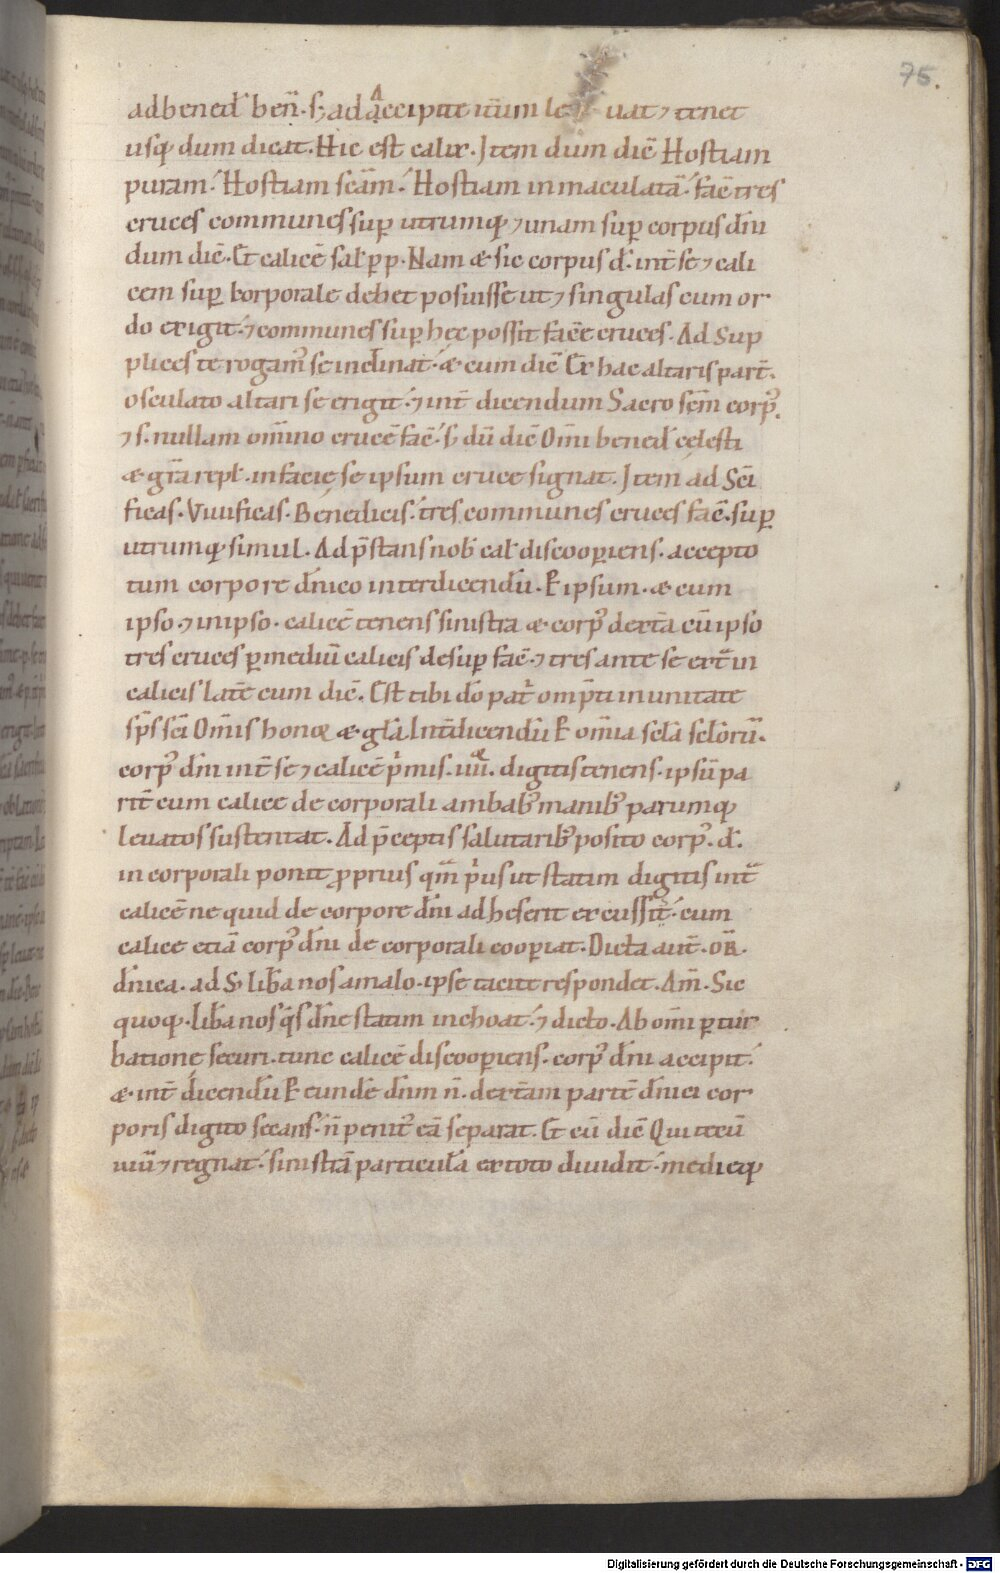 75.
ad bened̄ ben̄. s; ad Accipite it̄um le uat ⁊ tenet
usq; dum dicat. Hic est calix. Item dum dic̄ Hostiam
puram. Hostiam sc̄am. Hostiam inmaculatā. fac̄ tres
cruces communes sup̄ utrumq; ⁊ unam sup̄ corpus dn̄i
dum dic̄. Et calicē sal̄ pp. Nam & sic corpus d̄. int̄ se ⁊ cali
cem sup̄ corporale debet posuisse ut ⁊ singulas cum or
do exigit. ⁊ communes sup̄ hec possit fac̄e cruces. Ad Sup
plices te rogam᷒ se inclinat. & cum dic̄ Ex hac altaris part̄.
osculato altari se erigit. ⁊ int̄ dicendum Sacro sc̄m corp᷒.
⁊ s. nullam om̄ino crucē fac̄. s; dū dic̄ Om̄i bened̄ cęlesti
& gr̄a repl̄. in facię se ipsum cruce signat. Item ad Sc̄i
ficas. Viuificas. Benedicis. tres communes cruces fac̄. sup̄
utrumq; simul. Ad p̄stans nob̄ cal̄ discoop̄iens. accepto
tum corpore dn̄ico inter dicend̄. P ipsum. & cum
ipso. ⁊ in ipso. calicē tenens sinistra & corp᷒ dextā cū ipso
tres cruces p̄ mediū calicis desup̄ fac̄. ⁊ tres ante se ext̄ in
calicis lat̄e cum dic̄. Est tibi d̄o pat̄ om̄pt̄i in unitate
sp̄s sc̄i Om̄is honor & gl̄a. Int̄ dicend̄ū P om̄ia sc̄la sc̄lorū.
corp᷒ dn̄i int̄ se ⁊ calicē p̄mis. iiii. digitis tenens. ipsū pa
rit̄ cum calice de corporali ambab᷒ manib᷒ parumq;
leuatos sustentat. Ad p̄ceptis salutarib᷒ posito corp᷒. d̄.
in corporali ponit p̄prius qm̄ p̄us ut statim digitis int̄
calicē ne quid de corpore dn̄i adheserit excussit. cum
calice etiā corp᷒ dn̄i de corporali coop̄iat. Dicta aut̄. or̄.
dn̄ica. ad S; lib̄a nos a malo. ipse tacite respondet. Am̄. Sic
quoq;. lib̄a nos q̄s dn̄e statim inchoat. ⁊ dicto. Ab om̄i p̄tur
batione securi. tunc calicē discoop̄iens. corp᷒ dn̄i accipit.
& int̄ dicend̄u P eund̄e dn̄m n̄. dext̄am partē dn̄ici cor
poris digito secans. n̄ penit᷒ eā separat. Et cū dic̄ Qui tecū
uiū ⁊ regnat. sinistrā particul̄a ex toto diuidit. medieq;
Digitalisierung gefördert durch die Deutsche Forschungsgemeinschaft - DFG